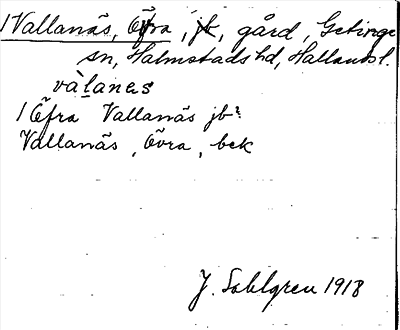 1 Vallanäs, Öfra, jb, gård, Getinge
sn, Halmstads hd, Hallands l.
vàlanes
1 Öfra Vallanäs jb
Vallanäs, Övra, bek
J. Sahlgren 1918